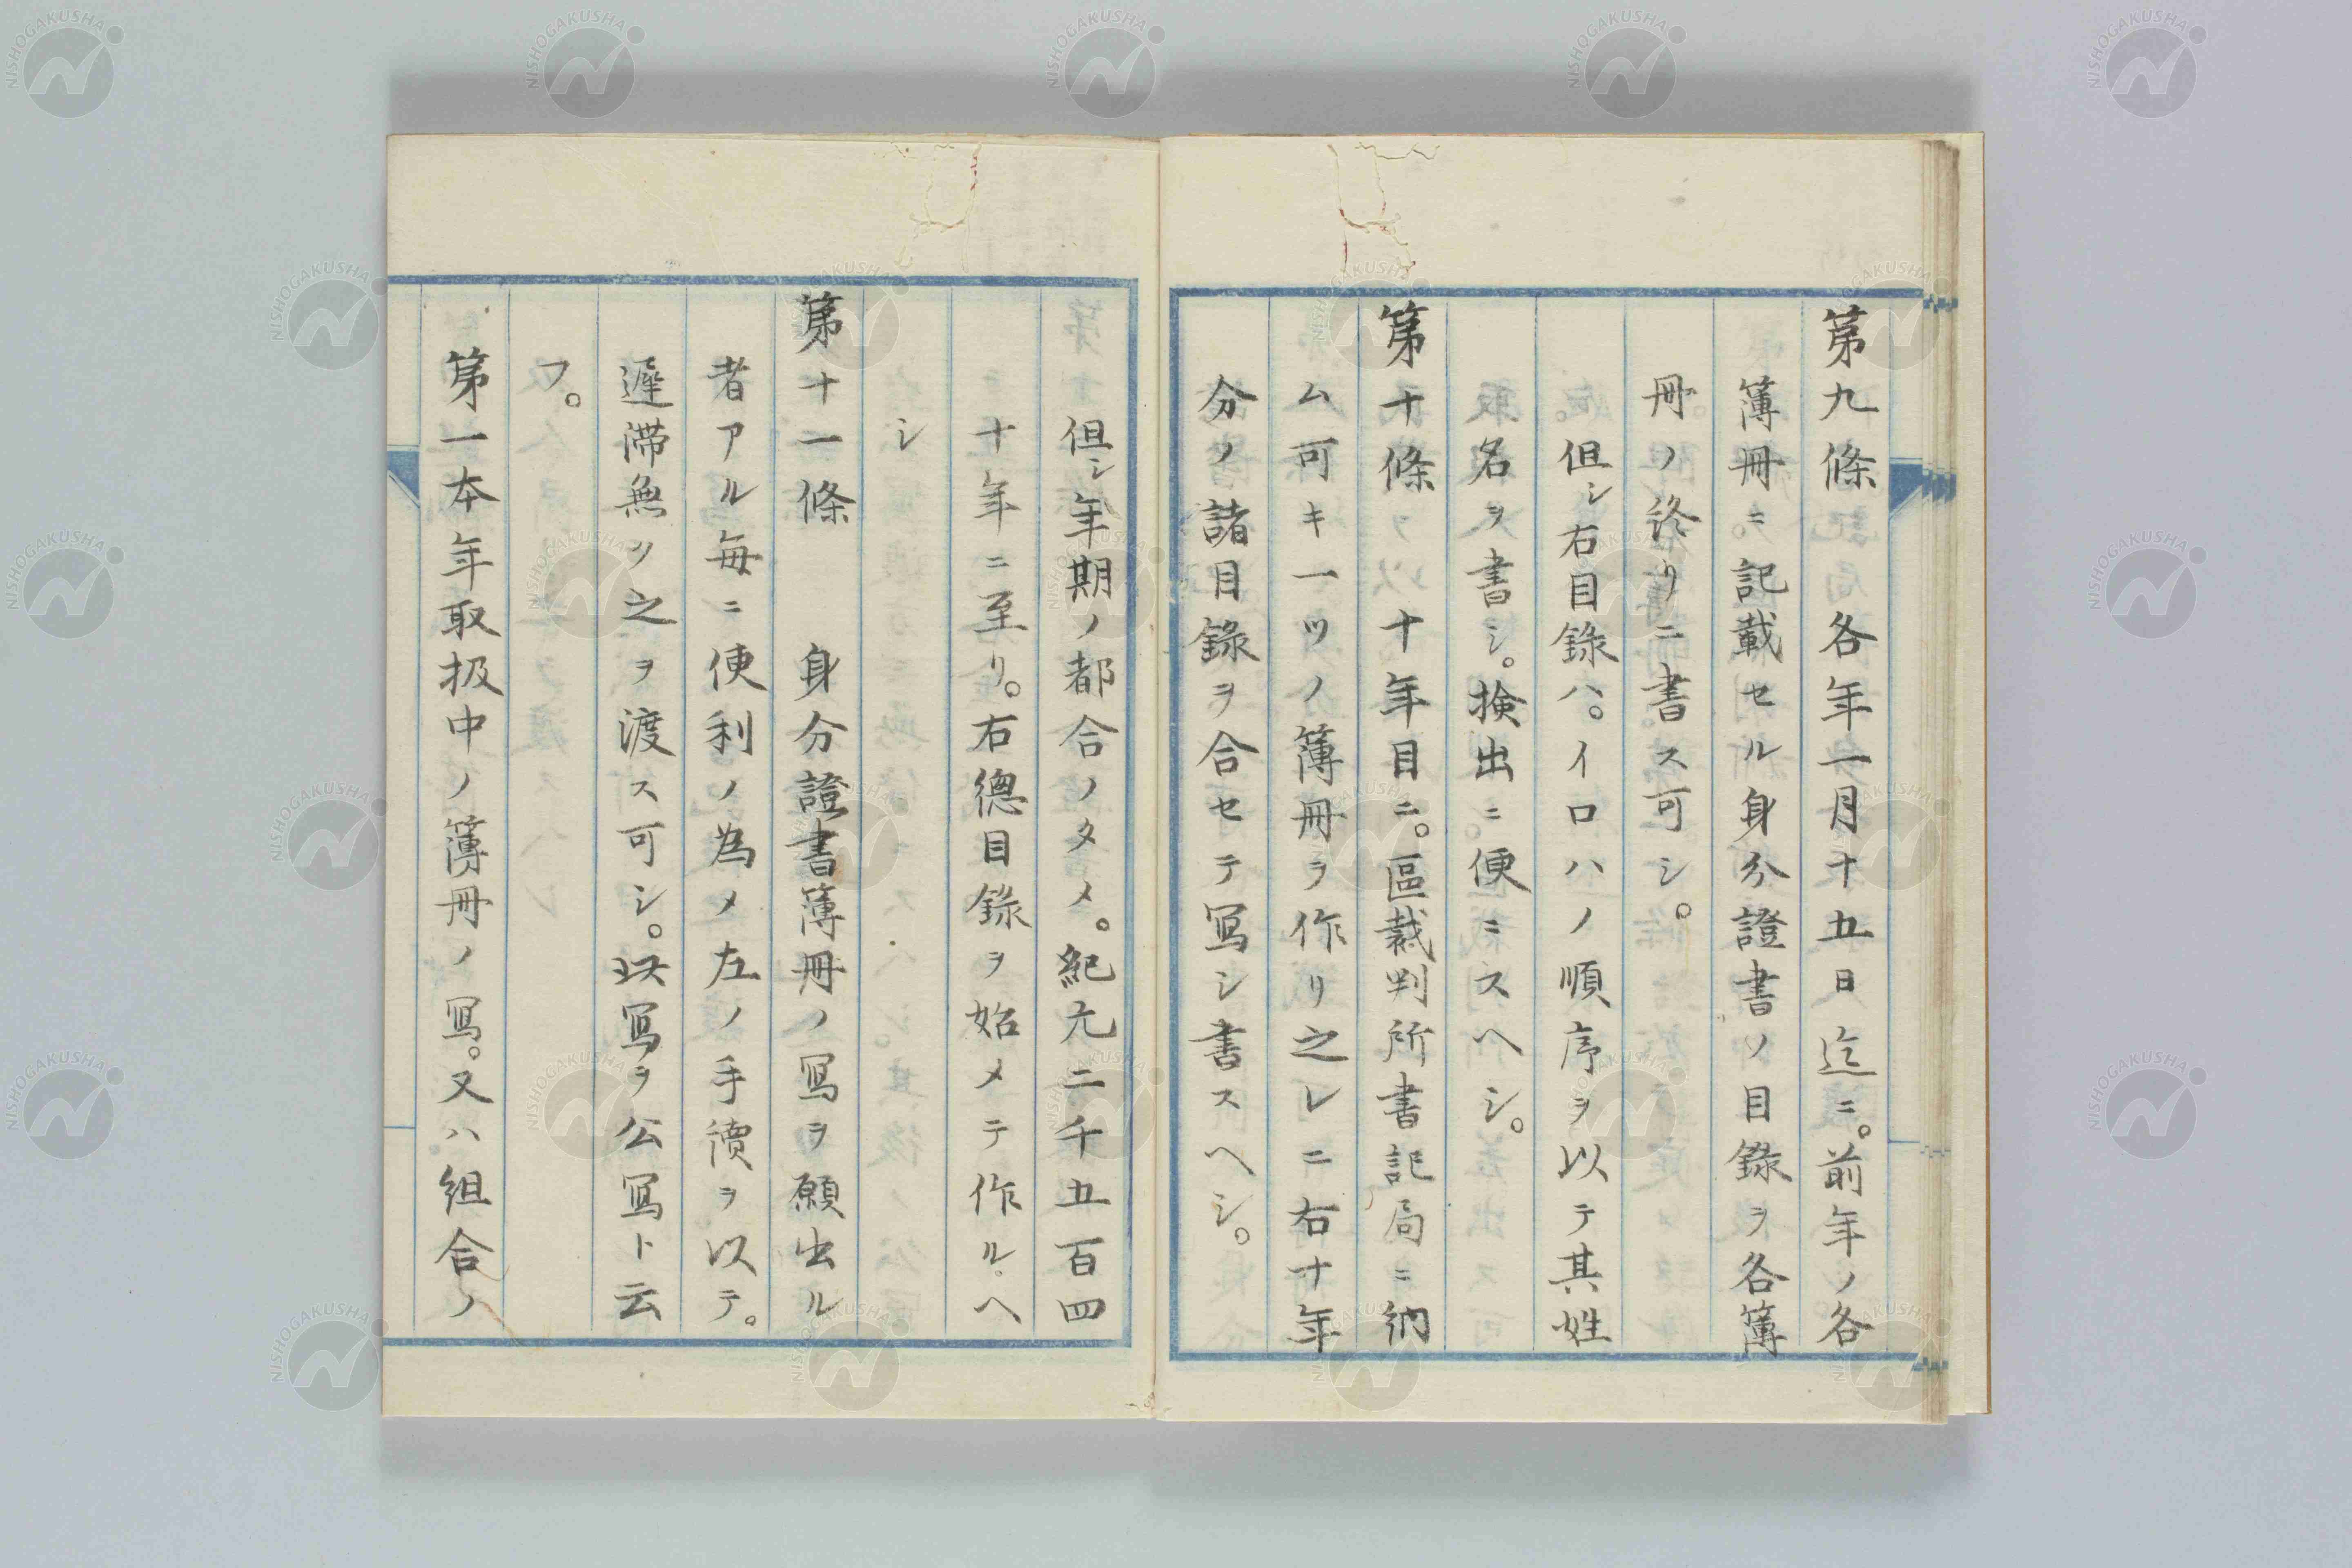 第九條　各年一月十五日迄ニ。前年ノ各
簿冊ニ記載セル身分證書ノ目錄ヲ各簿
冊ノ終リニ書ス可シ。
但シ右目錄ハ。イロハノ順序ヲ以テ其姓
名ヲ書シ。検出ニ便ニスヘシ。
第十條　十年目ニ。區裁判所書記局ニ納
ム可キ一ツノ簿冊ヲ作リ之レニ右十年
分ノ諸目錄ヲ合セテ寫シ書スヘシ。
但シ年期ノ都合ノタメ。紀元二千五百四
十年ニ至リ。右德目錄ヲ始メテ作ルヘ
シ
第十一條　身分證書簿冊ノ寫ヲ願出ル
者アル每ニ便利ノ為メ左ノ手價ヲ以テ。
遲滯無ク之ヲ渡ス可シ。此寫ヲ公寫ト云
フ。
第一本年取扱中ノ簿冊ノ寫。又ハ組合ノ
NISHOGAKUSHA